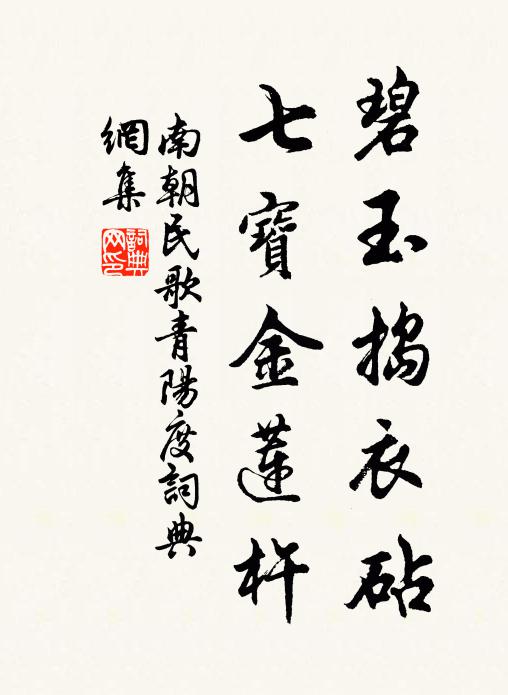 碧玉搗衣砧
七寶金蓮杵
南朝民歌青陽度詞典
網集
詞典
网印